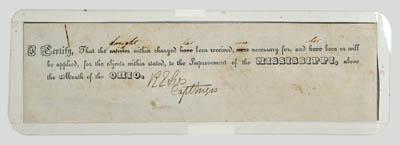 bought to to
I Certify, That the articles within charged have been received, are necessary for, and have been or will
be applied, for the objects within stated, to the Improvement of the MISSISSIPPI, above
the Mouth of the OHIO.
R E Lee
Capt Engrs